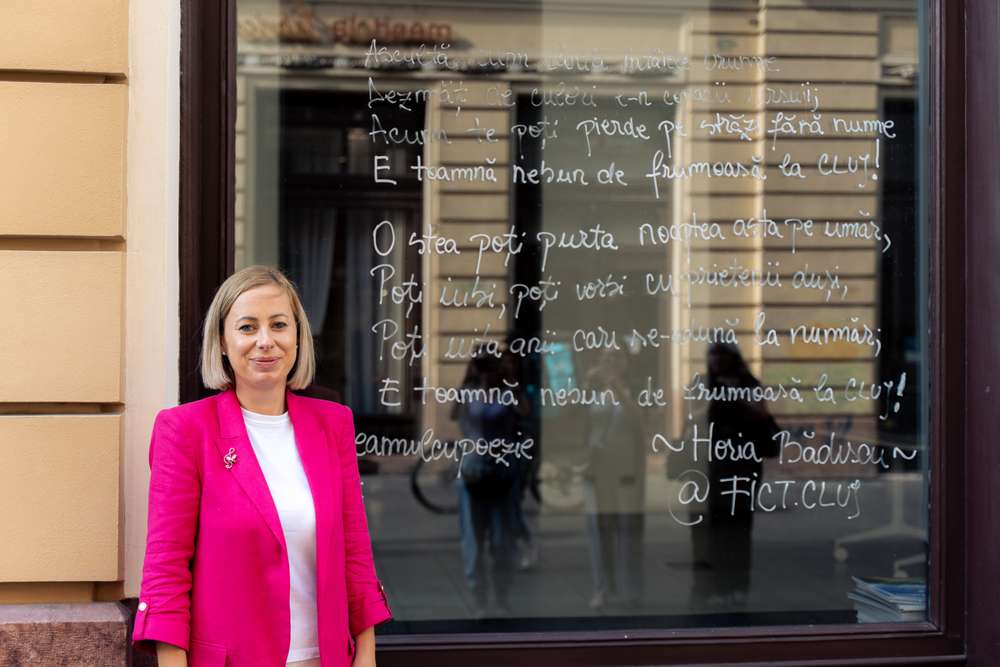 Ascultă, cum
Dezmăț de culori
Acum te poți pierde pe străzi fără nume
E toamnă nebun de frumoasă la Cluj!
O stea poți purta noaptea asta pe umăr,
Poți iubi, poți vorbi cu prietenii duși,
Poți uita anii cari se-adună la număr;
E toamnă nebun de frumoasă la Cluj!
eamulcupoezie
~Horia Bădescu~
@FICT.CLUJ